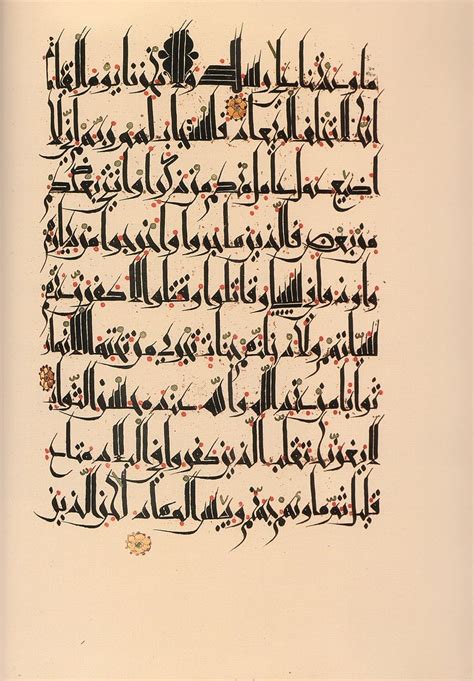 ما وعدتنا على رسلك ولا تخزنا يوم القيامة
انك لا تخلف الميعاد فاستجاب لهم ربهم اني لا
اضيع عمل عامل منكم من ذكر او انثى بعضكم
من بعض فالذين هاجروا واخرجوا من ديارهم
واوذوا في سبيلي وقاتلوا وقتلوا لاكفرن عنهم
سياتهم ولادخلنهم جنات تجري من تحتها الانهار
ثوابا من عند الله والله عنده حسن الثواب
لا يغرنك تقلب الذين كفروا في البلاد متاع
قليل ثم ماويهم جهنم وبئس المهاد لكن الذين